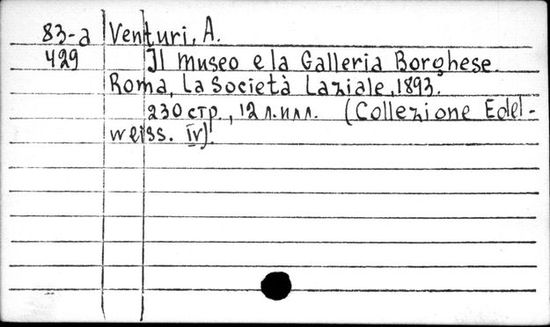 83-a Venturi, A.
429 Il museo e la Galleria Borghese.
Roma, La Società Laziale, 1893.
230 стр., 12 л. илл. (Collezione Edel-
weiss. IV).